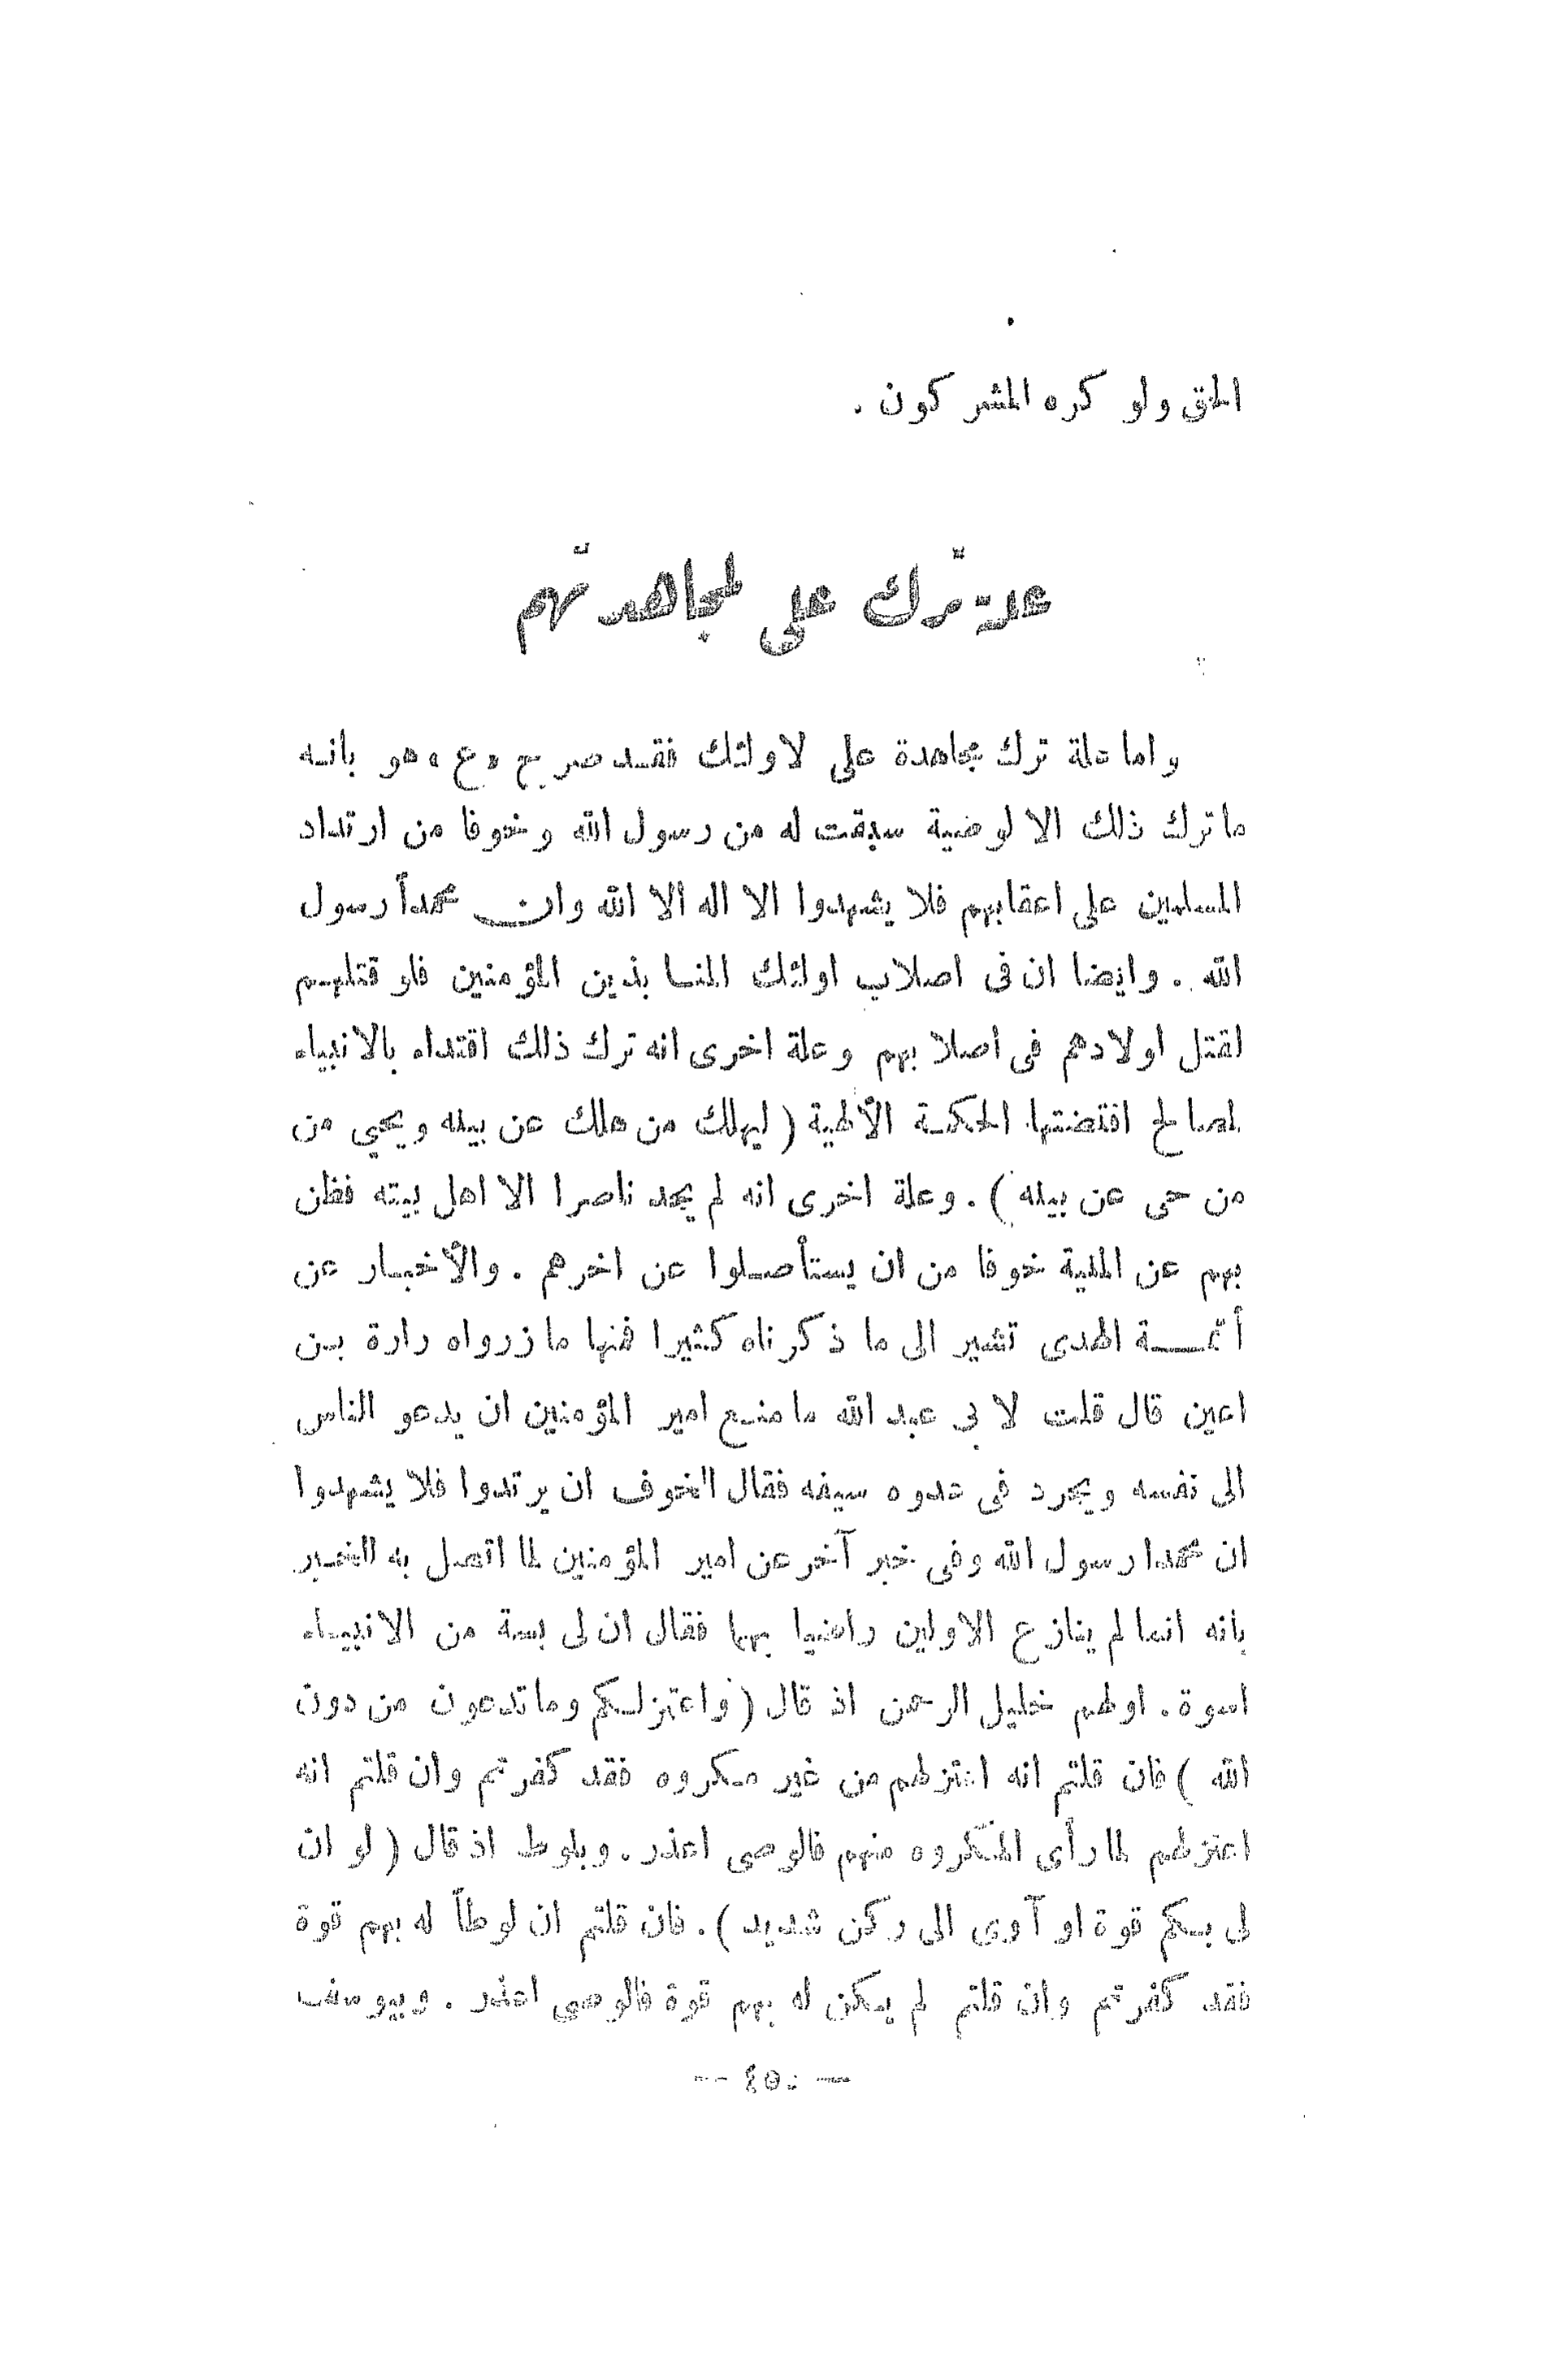 الحق ولو كره المشركون .
علة ترك علي لمجاهدتهم
واما علة ترك مجاهدة علي لاولئك فقد صرح «ع» هو بانه
ما ترك ذلك الا لوصية سبقت له من رسول الله وخوفا من ارتداد
المسلمين على اعقابهم فلا يشهدوا الا اله الا الله وان محمداً رسول
الله . وايضا ان في اصلاب اولئك المنابذين المؤمنين فلو قتلهم
لقتل اولادهم في اصلابهم وعلة اخرى انه ترك ذلك اقتداء بالانبياء
لمصالح اقتضتها الحكمة الألهية ( ليهلك من هلك عن بينه ويحيي من
من حى عن بينه ) . وعلة اخرى انه لم يجد ناصرا الا اهل بيته فظن
بهم عن المنية خوفا من ان يستأصلوا عن اخرهم . والأخبار عن
أئمة الهدى تشير الى ما ذكرناه كثيرا فمنها ما زرواه رارة بن
اعين قال قلت لابي عبد الله ما منع امير المؤمنين ان يدعو الناس
الى نفسه ويجرد في عدوه سيفه فقال الخوف ان يرتدوا فلا يشهدوا
ان محمدا رسول الله وفي خبر آخر عن امير المؤمنين لما اتصل به الخبر
بانه انما لم ينازع الاولين راضيا بهما فقال ان لي بستة من الانبياء
اسوة . اولهم خليل الرحمن اذ قال ( واعتزلكم وما تدعون من دون
الله ) فان قلتم انه اعتزلهم من غير مكروه فقد كفرتم وان قلتم انه
اعتزلهم لما رأى المنكروه منهم فالوصي اعذر . وبلوط اذ قال ( لو ان
لي بكم قوة او آوى الى ركن شديد ) . فان قلتم ان لوطاً له بهم قوة
فقد كفرتم وان قلتم لم يكن له بهم قوة فالوصي اعذر . وبيوسف